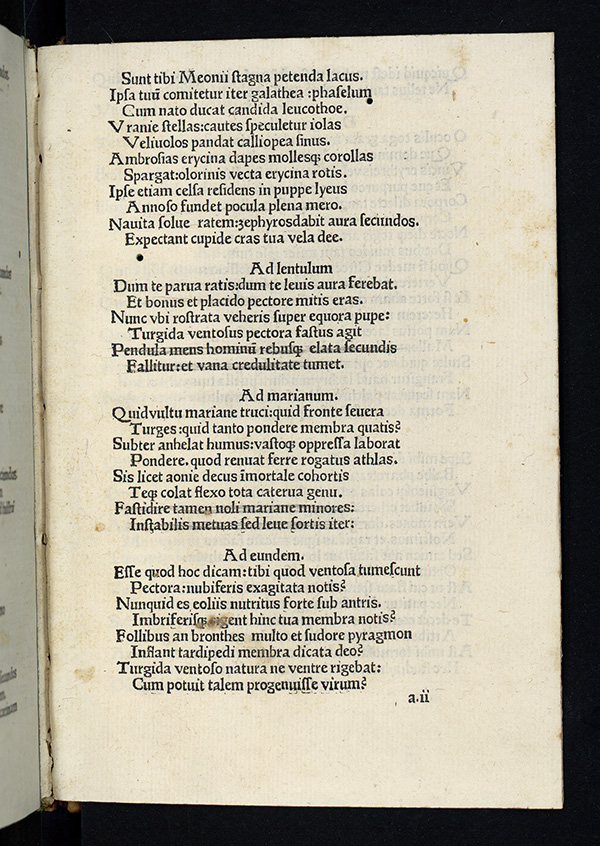 Sunt tibi Meonii ſtagna petenda lacus.
Ipſa tuū comitetur iter galathea :phaſelum
Cum nato ducat candida leucothoe.
Vranie ſtellas:cautes ſpeculetur iolas
Veliuolos pandat calliopea ſinus.
Ambroſias erycina dapes molleſqꝫ corollas
Spargat:olorinis vecta erycina rotis.
Ipſe etiam celſa reſidens in puppe lyeus
Annoſo fundet pocula plena mero.
Nauita ſolue ratem:zephyrosdabit aura ſecundos.
Expectant cupide cras tua vela dee.
Ad lentulum
Dum te parua ratis:dum te leuis aura ferebat.
Et bonus et placido pectore mitis eras.
Nunc vbi roſtrata veheris ſuper equora pupe:
Turgida ventoſus pectora faſtus agit
Pendula mens hominū rebuſqꝫ elata ſecundis
Fallitur:et vana credulitate tumet.
Ad marianum.
Quidvultu mariane truci:quid fronte ſeuera
Turges:quid tanto pondere membra quatis?
Subter anhelat humus:vaſtoqꝫ oppreſſa laborat
Pondere.quod renuat ferre rogatus athlas.
Sis licet aonie decus īmortale cohortis
Teqꝫ colat flexo tota caterua genu.
Faſtidire tamen noli mariane minores:
Inſtabilis metuas ſed leue ſortis iter:
Ad eundem.
Eſſe quod hoc dicam:tibi quod ventoſa tumeſcunt
Pectora:nubiferis exagitata notis?
Nunquid es eoliis nutritus forte ſub antris.
Imbriferiſqꝫ rigent hinc tua membra notis?
Follibus an bronthes multo et ſudore pyragmon
Inflant tardipedi membra dicata deo?
Turgida ventoſo natura ne ventre rigebat:
Cum potuit talem progenuiſſe virum?
a.ii